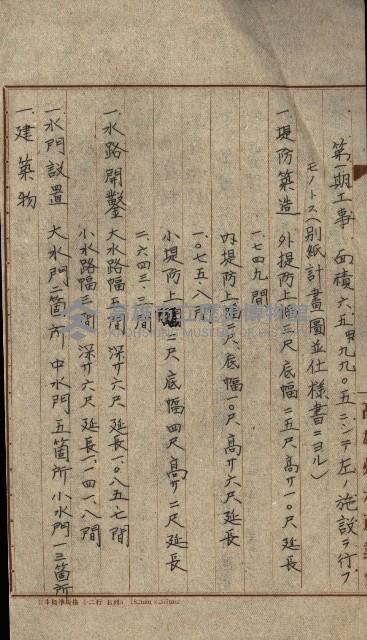 第一期工事 面積六五甲九九〇五ニシテ左ノ施設ヲ行フ
モノトス(別紙計畫圖並仕様書ニヨル)
一、堤防築造 外堤防上幅三尺底幅二五尺高サ一〇尺延長
一、七四九間
内堤防上幅二尺、底幅一〇尺高サ六尺延長
一、〇七五、八間
小堤防上幅二尺底幅四尺高サ二尺延長
二、六四三、三間
一、水路開鑿 大水路幅五間深サ六尺延長一、〇八五、七間
小水路幅三間深サ六尺延長一、一四一、八間
一、水門設置 大水門二箇所中水門五箇所小水門一三箇所
一、建築物
高雄市立歷史博物館
KAOHSIUNG MUSEUM OF HISTORY